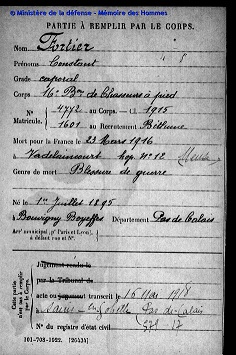 © Ministère de la défense - Mémoire des Hommes
PARTIE À REMPLIR PAR LE CORPS.
Nom Fortier
Prénoms Constant
Grade caporal
Corps 16e Bon de Chasseurs à pied
N° 4772 au Corps. — Cl. 1915
Matricule. 1601 au Recrutement Béthune
Mort pour la France le 23 Mars 1916
à Vadelaincourt hop. n° 12 Meuse
Genre de mort Blessure de guerre
Né le 1er Juillet 1895
à Bouvigny Boyeffles Département Pas de Calais
Arr' municipal (p' Paris et Lyon),
à défaut rue et N°.
Cette partie
n'est pas à remplir
par le Corps.
Jugement rendu le
par le Tribunal de
acte ou jugement transcrit le 16 Mai 1918
à Pas de Calais
N° du registre d'état civil
101-708-1922. [26434]